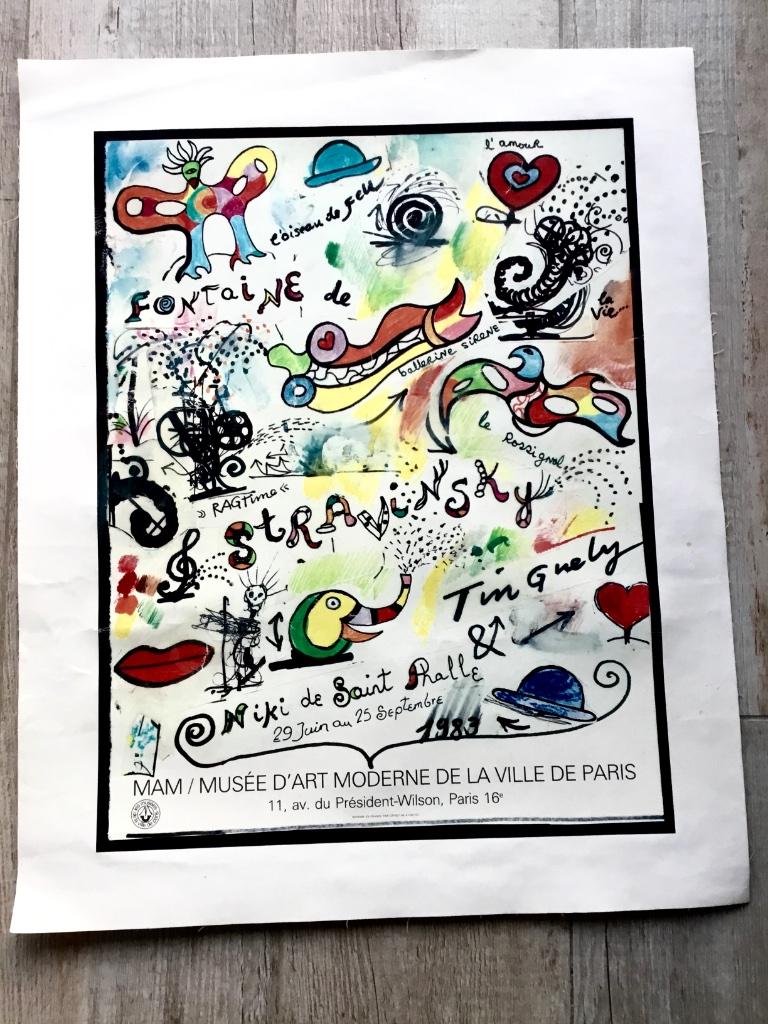 l'amour
l'oiseau de feu
FONTaiNE de
la
vie...
ballerine SIRENE
le Rossignol
» RAGTime «
STRAViNSKy
Tinguely
&
Niki de Saint Phalle
29 Juin au 25 Septembre
1983
MAM / MUSÉE D'ART MODERNE DE LA VILLE DE PARIS
11, av. du Président-Wilson, Paris 16e